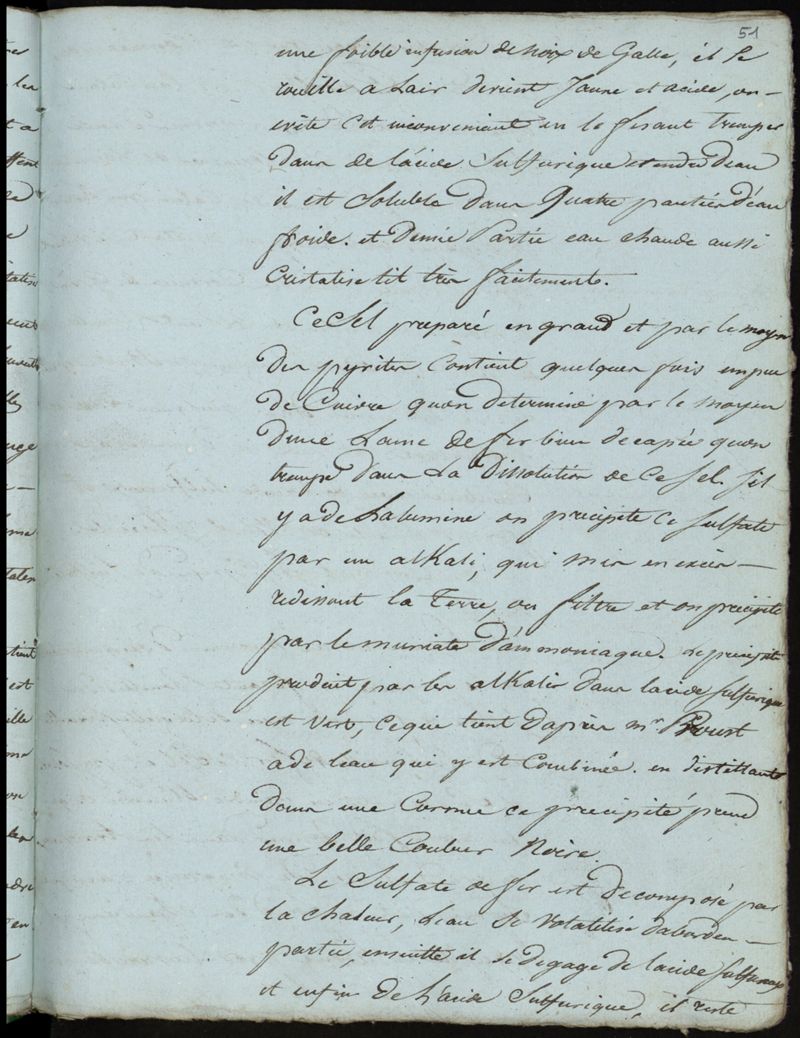 51
une foible infusion de noix de Galle, il se
rouille a Lair devient Jaune et acide, on
evite cet inconvenient en le fesant tremper
dans de lácide Sulfurique etendu deau
il est Soluble dans Quatre parties d'éau
froide. et Demie Partie eau chaude aussi
Cristalise til très facilement.
Ce Sel preparé en grand et par le moyen
des pyrites Contient quelques fois un peu
de Cuivre quon determine par le moyen
dune Lame de fer bien decapée quon
trempe dans La Dissolution de Ce sel. S'il
y a de Lalumine on precipite Ce Sulfate
par un alKali, qui mis en excès —
redissout la Terre, on filtre et on precipite
par le muriate Dámmoniaque. Le precipité
produit par les alKalis dans lacide Sulfurique
est vert, ce qui tient daprès mr Proust
a de leau qui y est Combinée. en distillant
dans une Cornue ce precipité prend
une belle Couleur Noire.
Le Sulfate de fer est decomposé par
la chaleur, Leau se volatilise dabord en —
partie, ensuitte il se degage de lacide Sulfureux
et enfin de L'acide Sulfurique, il reste